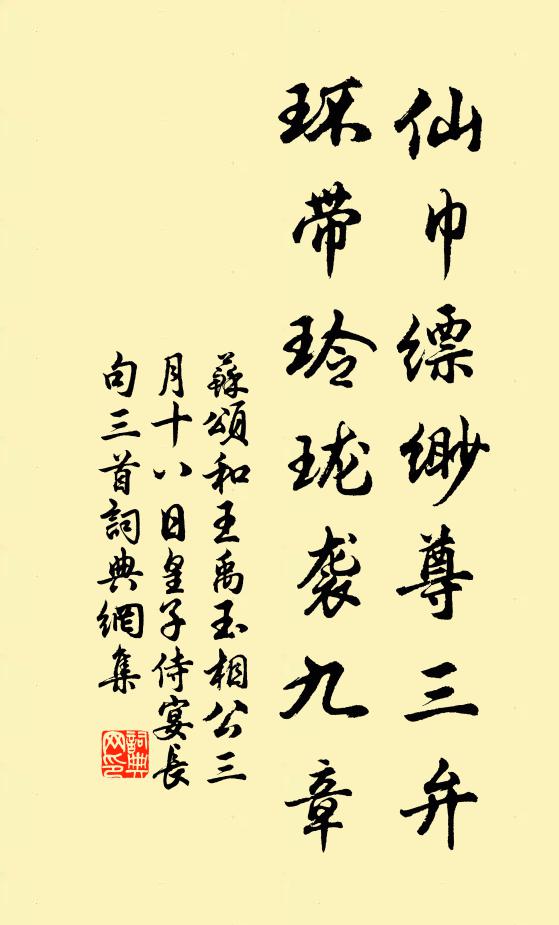 仙巾缥缈尊三弁
环带玲珑袭九章
蘇頌和王禹玉相公三
月十八日皇子侍宴長
句三首詞典網集
詞典
网印